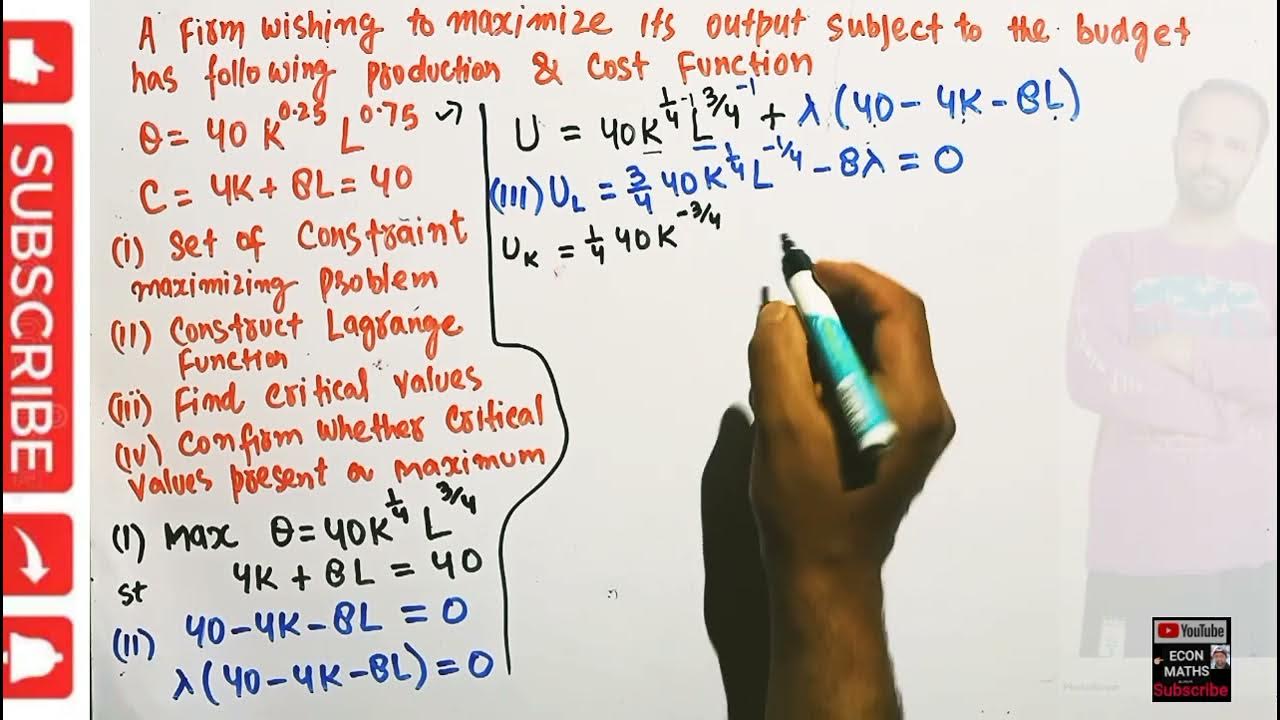 A Firm wishing to maximize its output subject to the budget
has following production & Cost Function
Q = 40 K^0.25 L^0.75
C = 4K + 8L = 40
(i) Set of Constraint
maximizing problem
(ii) Construct Lagrange
Function
(iii) Find critical values
(iv) Confirm whether critical
values present a maximum
(I) Max Q = 40K^1/4 L^3/4
st 4K + 8L = 40
(II) 40-4K-8L = 0
λ(40-4K-8L) = 0
U = 40K^1/4 -1 L^3/4 -1 + λ(40-4K-8L)
(III) U_L = 3/4 40K^1/4 L^-1/4 - 8λ = 0
U_K = 1/4 40K^-3/4
SUBSCRIBE
YouTube
ECON
MATHS
Subscribe